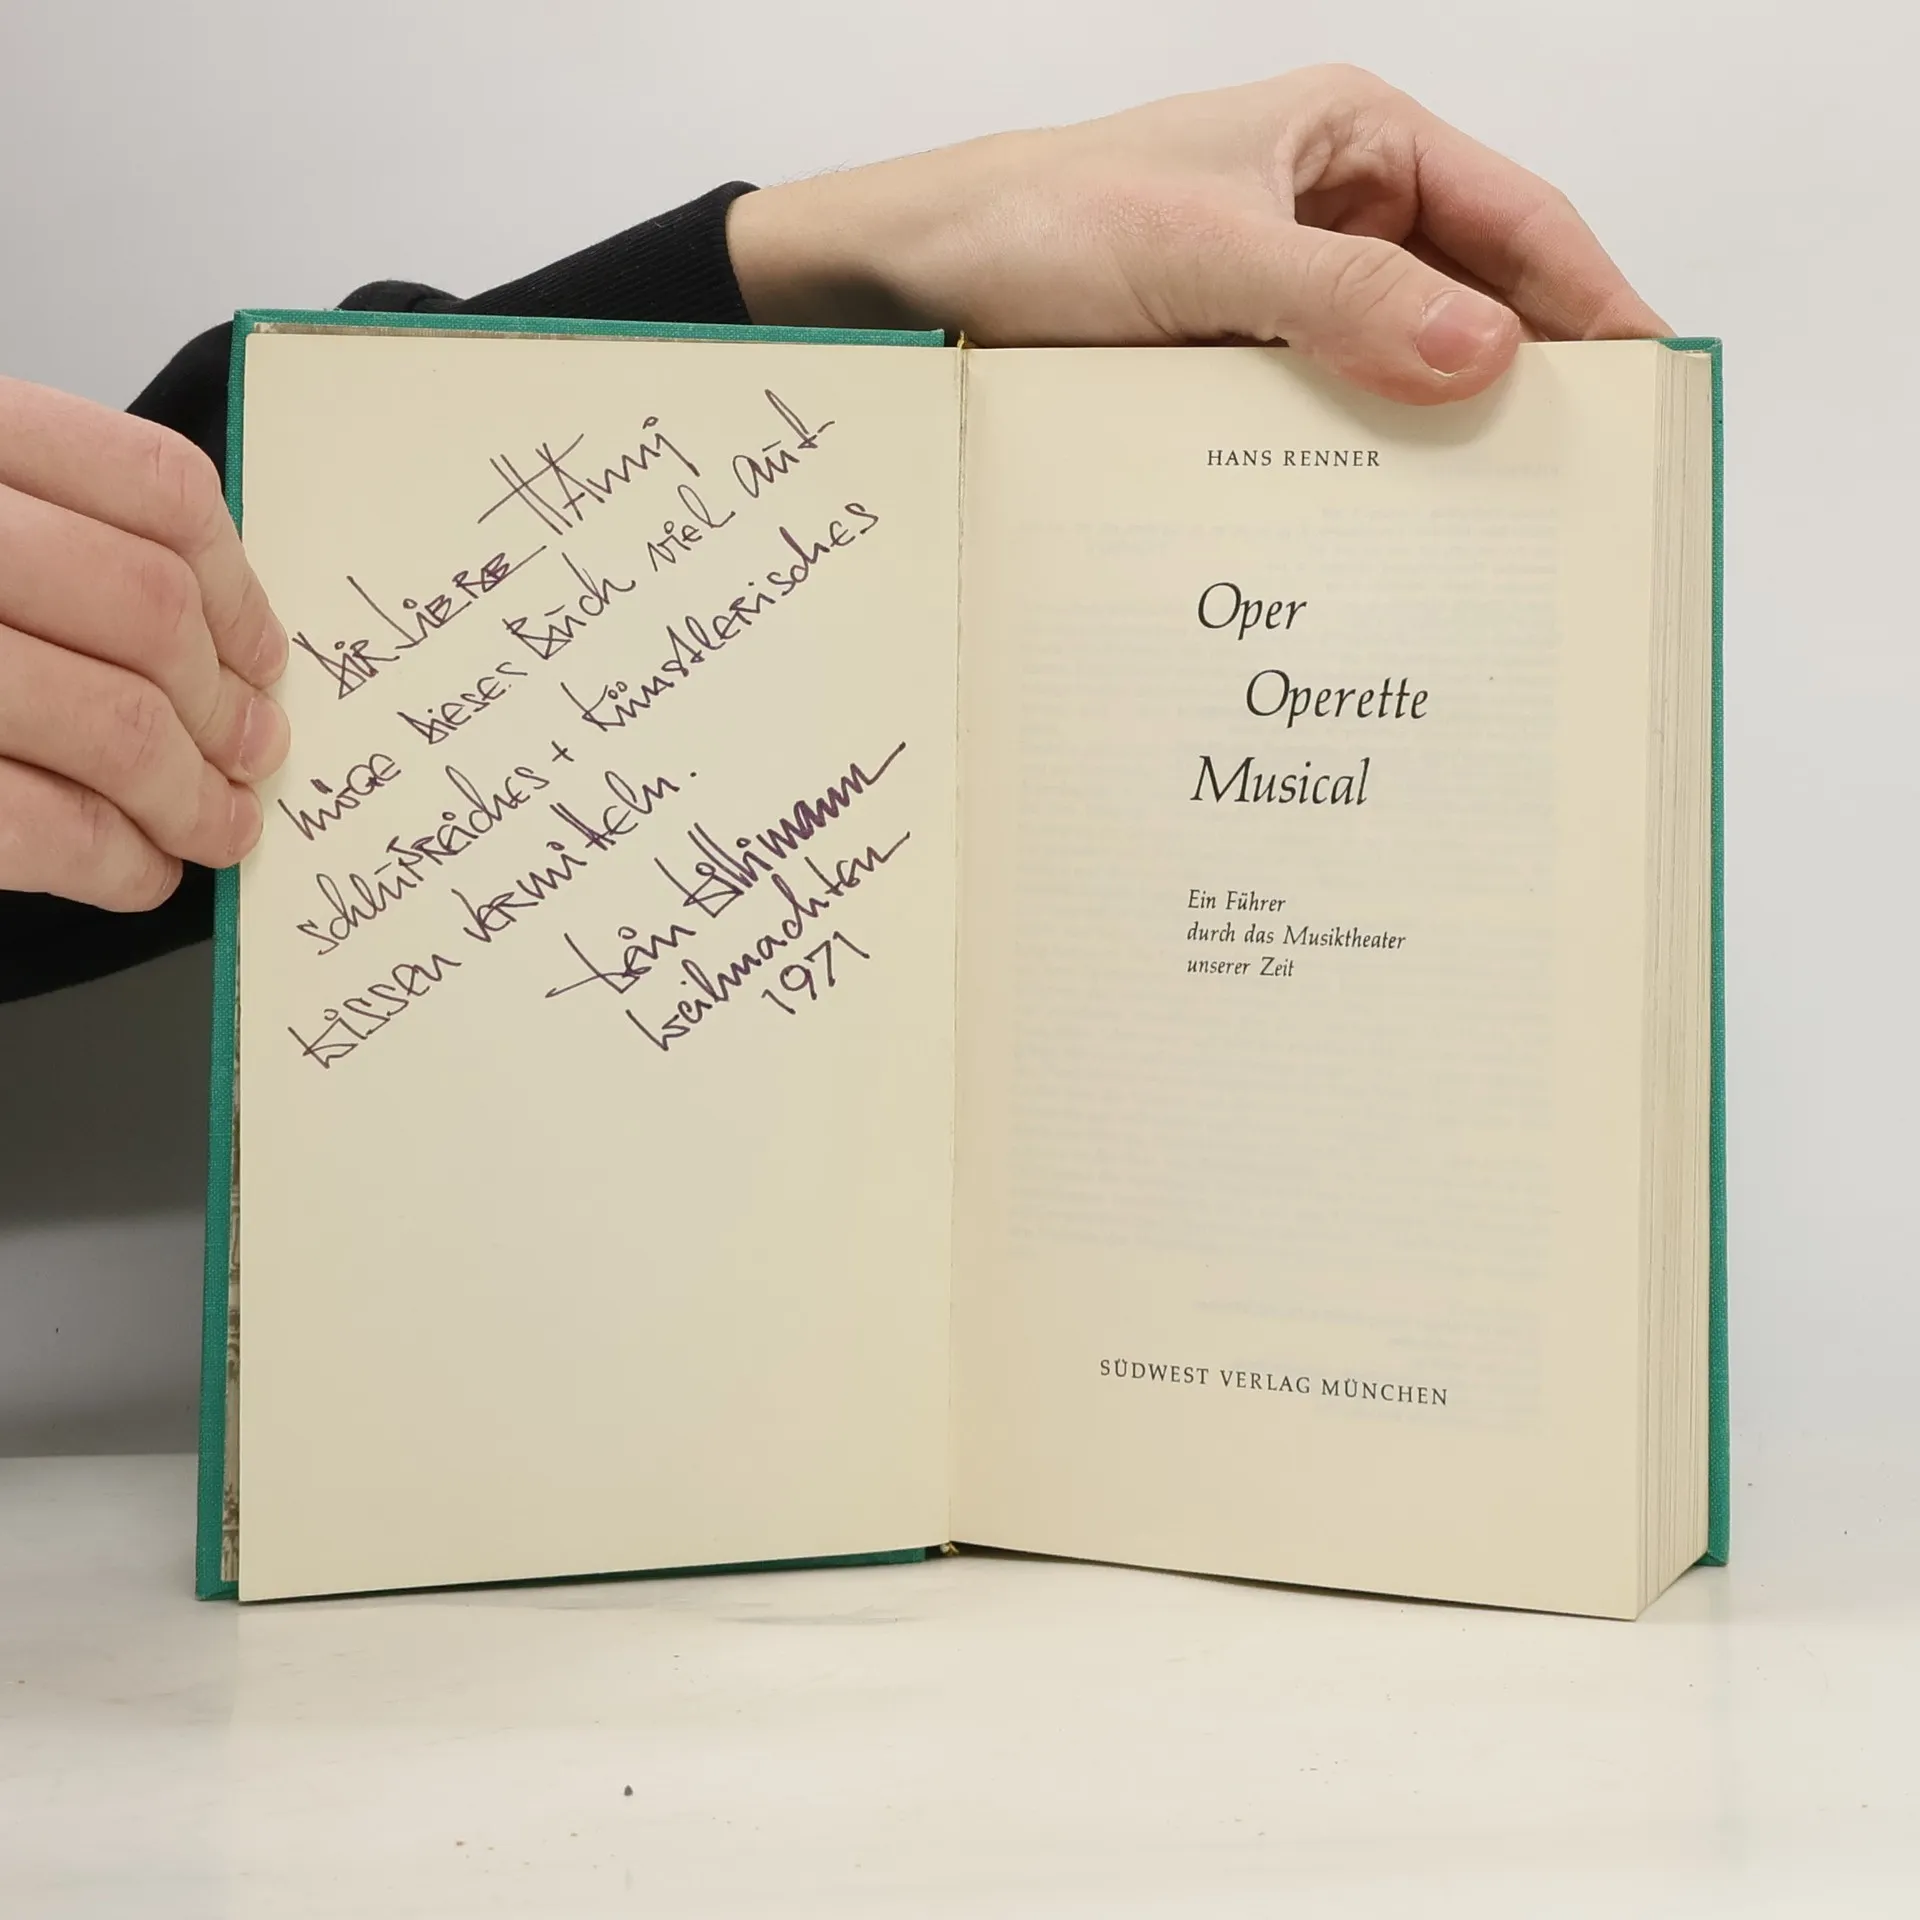 Dir Liebe Hanni
möge dieses Buch viel auf-
schlußreiches + künstlerisches
Wissen vermitteln.
Dein
Weihnachten
1971
HANS RENNER
Oper
Operette
Musical
Ein Führer
durch das Musiktheater
unserer Zeit
SÜDWEST VERLAG MÜNCHEN